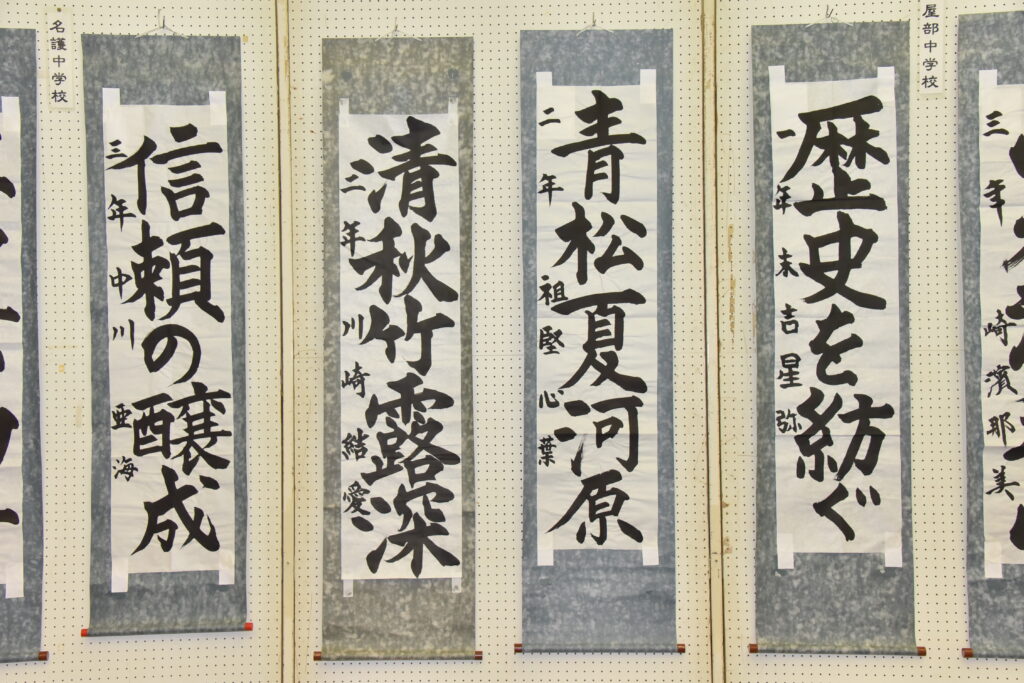 屋部中学校
三年
崎濱那美
歴史を紡ぐ
一年 末吉星弥
青松夏河原
二年 祖堅心葉
清秋竹露深
二年 川崎結愛
名護中学校
信頼の醸成
三年 中川亜海